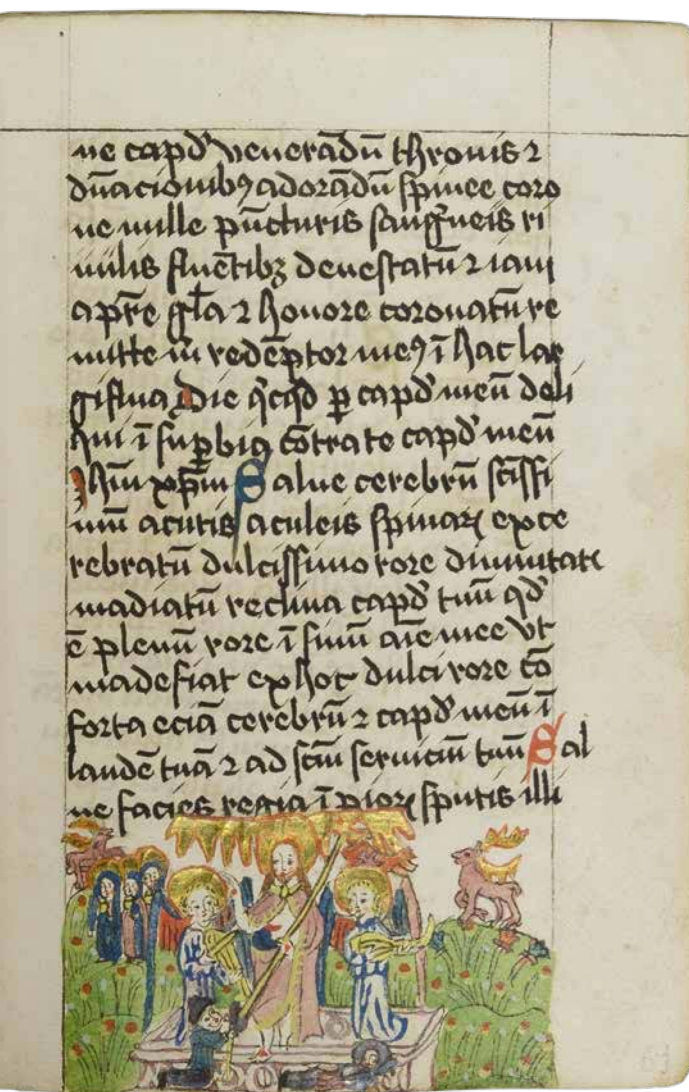 ue capd̕ veneradū thronis ⁊
dn̄acionibꝯ adoradū spinee coro
ne mille pūcturis sangͥneis ri
uulis fluētibꝫ deuestatū ⁊ iam
a pr̄e gl̄a ⁊ honore coronatū re
mitte m̄ redēptor meꝯ ī hac lar
gislua die qͥcqͥd ꝑ capd̕ meū deli
qui ī suꝑbia cōtra te capd̕ meū
Ihm̄ xp̄m Salue cerebrū sc̄issi
mū acutis aculeis spinaꝝ exce
rebratū dulcissimo rore diuinitatꝭ
madiatū reclina capd̕ tuū qd̕
ē plenū rore ī sinū aīe mee vt
madefiat ex hoc dulci rore cō
forta eciā cerebrū ⁊ capd̕ meū ī
laudē tuā ⁊ ad sc̄m seruiciū tuū Sal
ue facies regia ī pioꝝ sputis illi